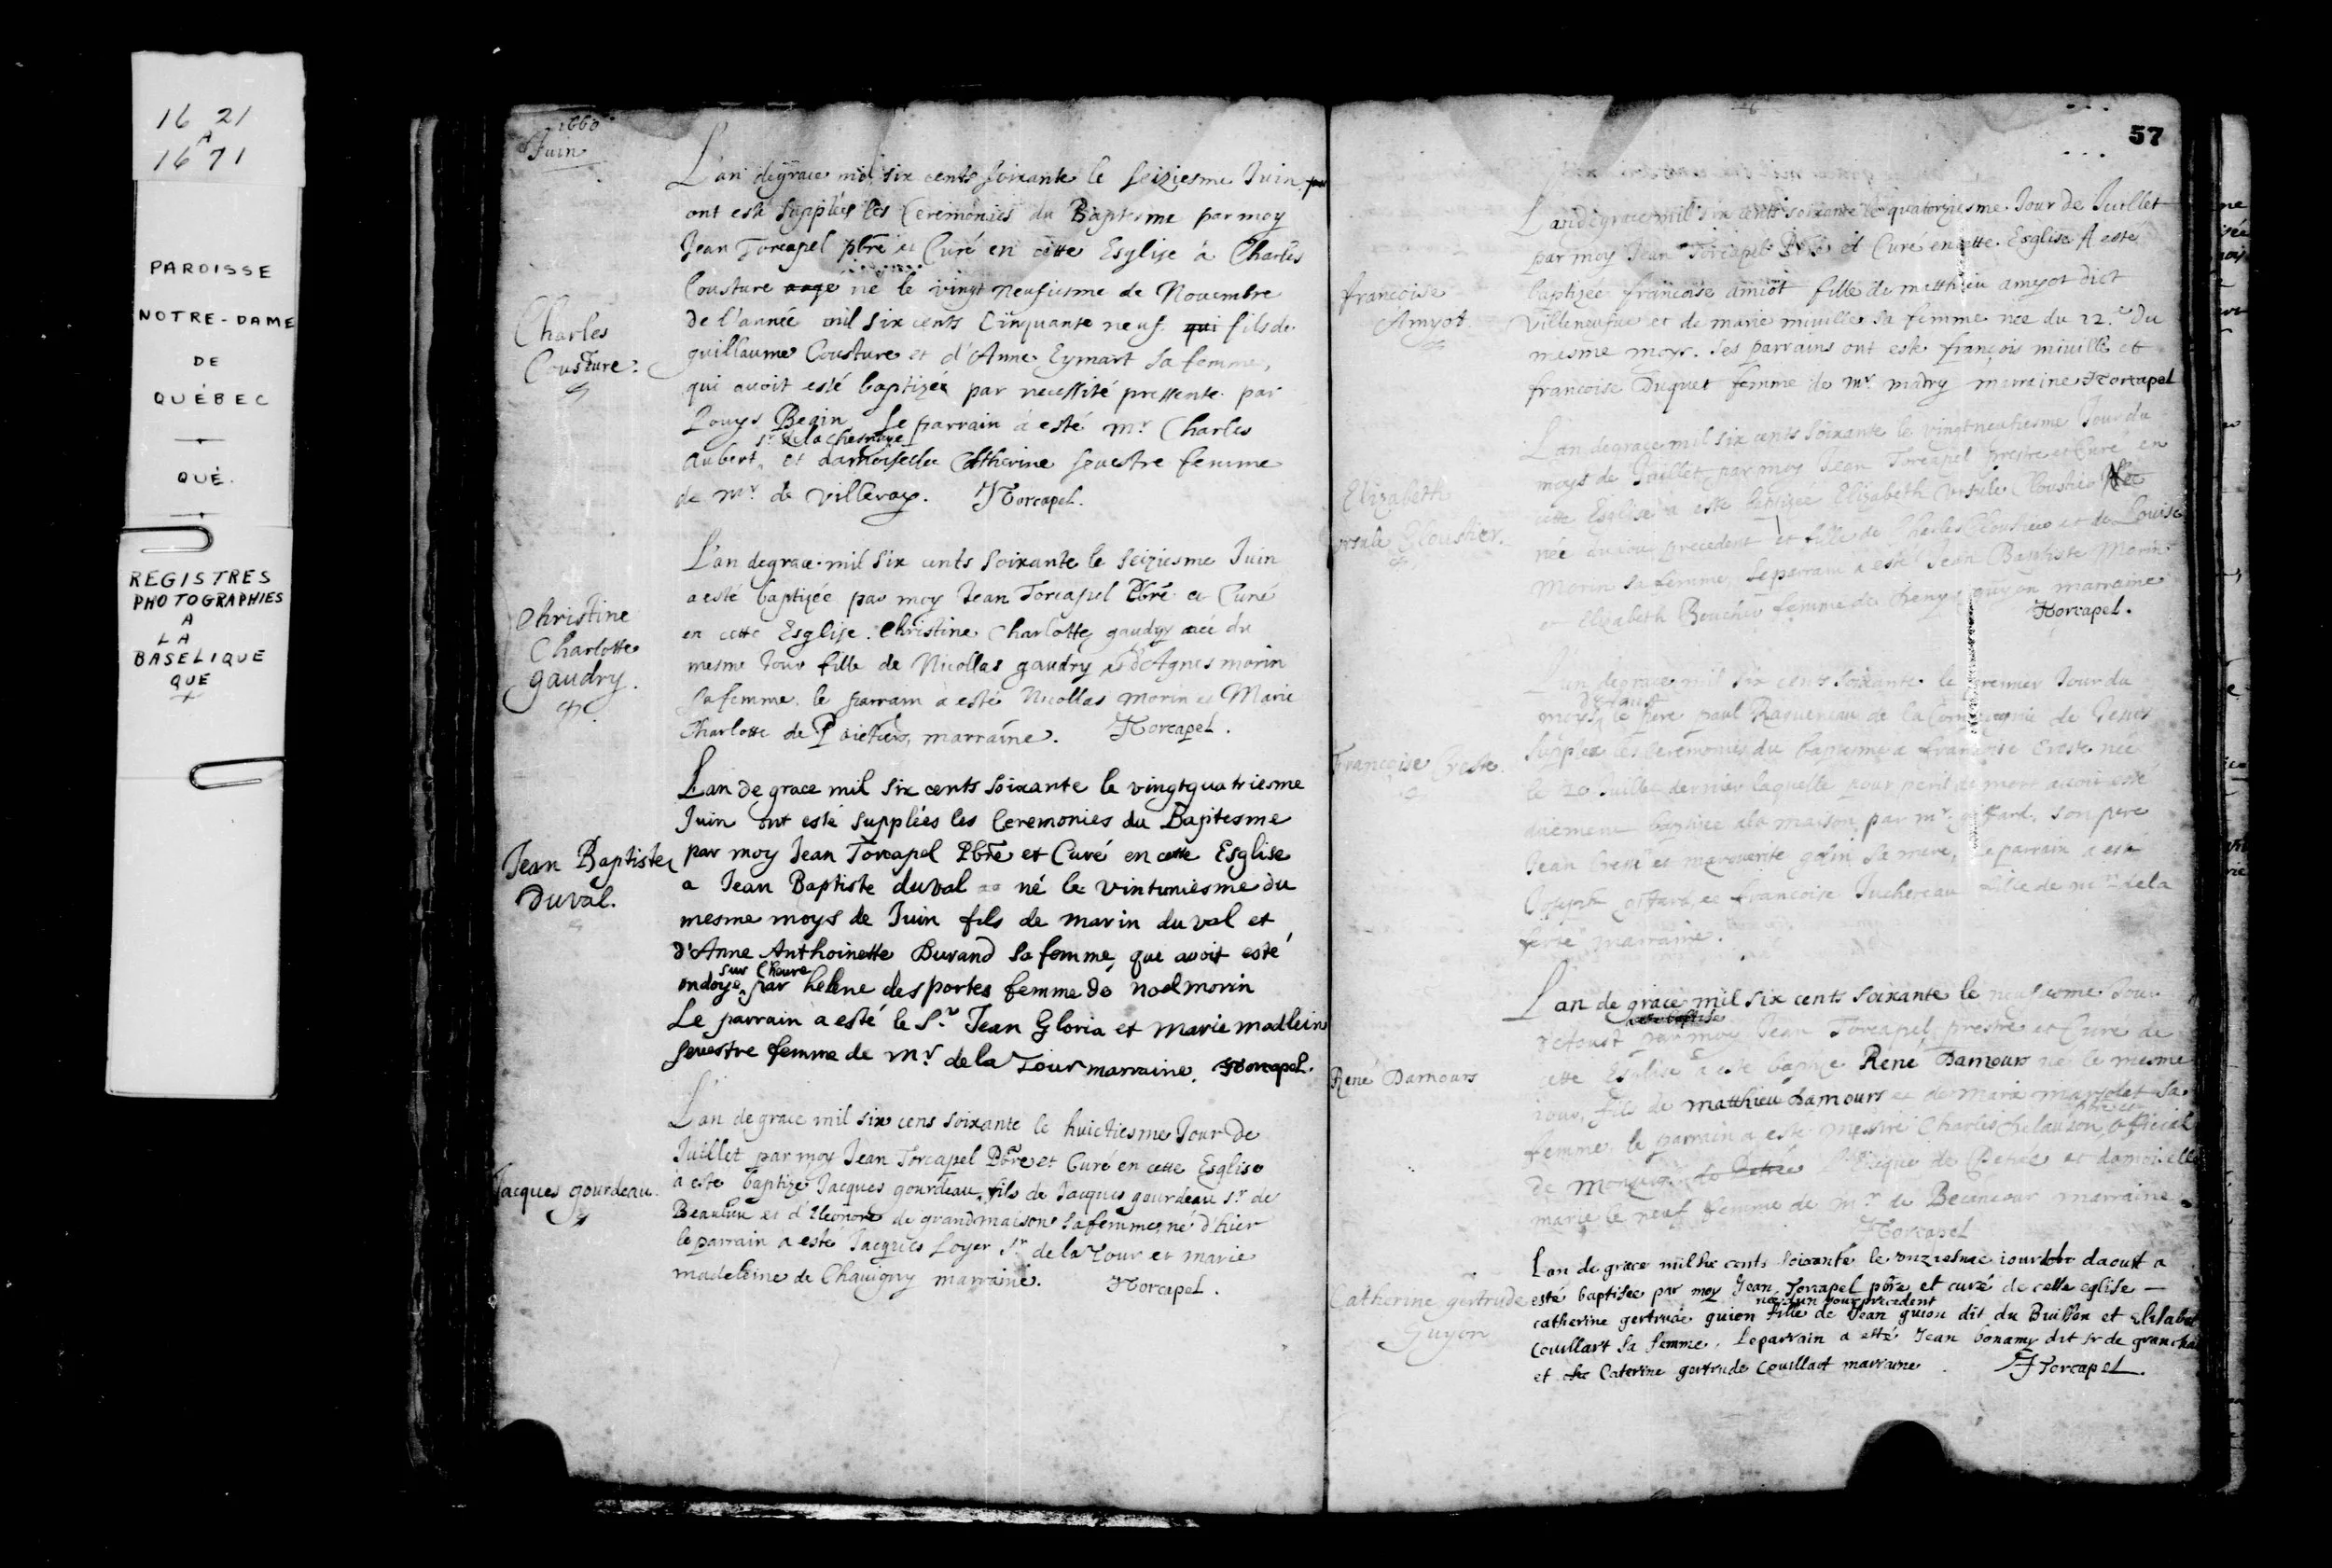 16 21
A
16 71
PAROISSE
NOTRE-DAME
DE
QUÉBEC
QUÉ.
REGISTRES
PHOTOGRAPHIES
A
LA
BASELIQUE
QUE
1660
Juin
Charles
Cousture.
L'an de grace mil six cents soixante le seiziesme Juin
ont esté suppliés les Ceremonies du Baptesme par moy
Jean Torcapel pbre et Curé en cette Esglise à Charles
Cousture né le vingt neufiesme de Novembre
de l'année mil six cents Cinquante neuf qui fils de
guillaume Cousture et d'Anne Eymart sa femme,
qui avoit esté baptizée par necessité pressente par
Louys Begin Le parrain a esté Mr Charles
sr de la chesnaye
Aubert, et damoiselle Catherine sevestre femme
de Mr de Villeray. JTorcapel.
Christine
Charlotte
gaudry.
L'an de grace mil six cents soixante le seiziesme Juin
a esté baptizée par moy Jean Torcapel Pbre et Curé
en cette Esglise. Christine Charlotte gaudry née du
mesme Jour fille de Nicollas gaudry et d'Agnes morin
sa femme. le parrain a esté Nicollas Morin et Marie
Charlotte de Poictiers, marraine. JTorcapel.
Jean Baptiste
Duval.
L'an de grace mil six cents soixante le vingtquatriesme
Juin ont esté suppliées les Ceremonies du Baptesme
par moy Jean Torcapel Pbre et Curé en cette Esglise
a Jean Baptiste duval né le vintuniesme du
mesme moys de Juin fils de marin duval et
d'Anne Anthoinette Durand sa femme, que avoit esté
sur l'heure
ondoye par helene desportes femme de noel morin
Le parrain a esté le Sr Jean Gloria et marie madlein
sevestre femme de Mr de la Tour marraine. JTorcapel.
Jacques gourdeau
L'an de grace mil six cens soixante le huictiesme Jour de
Juillet par moy Jean Torcapel Pbre et Curé en cette Esglise
a esté baptizé Jacques gourdeau, fils de Jacques gourdeau sr de
Beaulieu et d'Eleonore de grandmaison sa femme, né d'hier
le parrain a esté Jacques Loyer Sr de la Tour et marie
madeleine de Chavigny marraine. JTorcapel.
57
francoise
Amyot.
L'an de grace mil six cents soixante le quatorziesme Jour de Juillet
par moy Jean Torcapel Pbre et Curé en cette Esglise A esté
baptizée francoise amiot fille de matthieu amyot dict
Villeneufve et de marie miville sa femme née du 12.e du
mesme moys. Ses parrains ont esté françois miville et
francoise Duquet femme de Mr madry marraine JTorcapel
Elizabeth
Ursule Cloustier.
L'an de grace mil six cents soixante le vingtneufiesme Jour du
moys de Juillet par moy Jean Torcapel prestre et Curé en
cette Esglise a esté baptizée Elizabeth Ursule Cloustier
née du jour precedent et fille de Charles Cloustier et de Louise
Morin sa femme, le parrain a esté Jean Baptiste Morin
et Elizabeth Boucher femme de Denys guyon marraine
JTorcapel.
Françoise Creste.
L'an de grace mil six cents soixante le premier Jour du
D'Aoust
moys le Pere paul Ragueneau de la Compagnie de Jesus
supplea les Ceremonies du baptesme a francoise Creste née
le 20 Juillet dernier laquelle pour peril de mort avoit esté
baptizée a la maison par Mr giffard, son pere
Jean Creste et marguerite sa mere, Le parrain a esté
Joseph giffard, et francoise Juchereau fille de Mr de la
ferté marraine.
René Damours
L'an de grace mil six cents soixante le neufiesme Jour
d'Aoust par moy Jean Torcapel, prestre et Curé de
cette Esglise a esté baptizé René Damours né le mesme
iour, fils de matthieu damours et de Marie marsolet sa
femme, le parrain a esté Messire Charles de lauzon, official
de Monseigr Evesque de Petrée et damoiselle
marie le neuf femme de Mr de Becancour marraine.
JTorcapel
Catherine gertrude
Guyon
L'an de grace mil six cents soixante le onziesme iour daoust a
esté baptisee par moy Jean Torcapel pbre et curé de cette eglise —
née d'un jour precedent
catherine gertrude guion fille de Jean guion dit du Buisson et Elisabet
Couillart sa femme. Le parrain a esté Jean bonamy dit sr de
et Caterine gertrude Couillart marraine. JTorcapel.